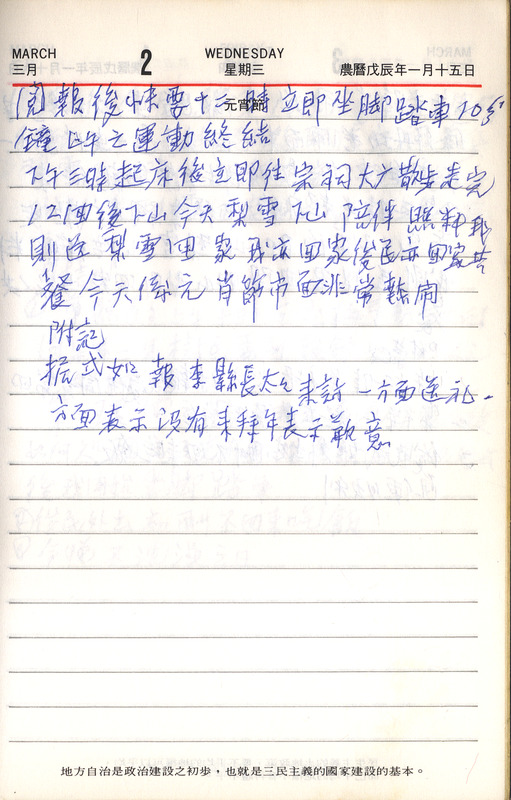 MARCH
三月
2
WEDNESDAY
星期三
農曆戊辰年一月十五日
元宵節
閱報後快要十二時立即坐脚踏車10分
鐘上午之運動終結
下午三時起床後立即往宗祠大广散步走完
12回後下山今天梨雪下山陪伴照料我
則送梨雪回家我亦回家後民亦回家共
餐今天係元肖節市面非常熱鬧
附記
据式如報李縣長太太來訪一方面送礼一
方面表示没有來拜年表示歉意
地方自治是政治建設之初步，也就是三民主義的國家建設的基本。